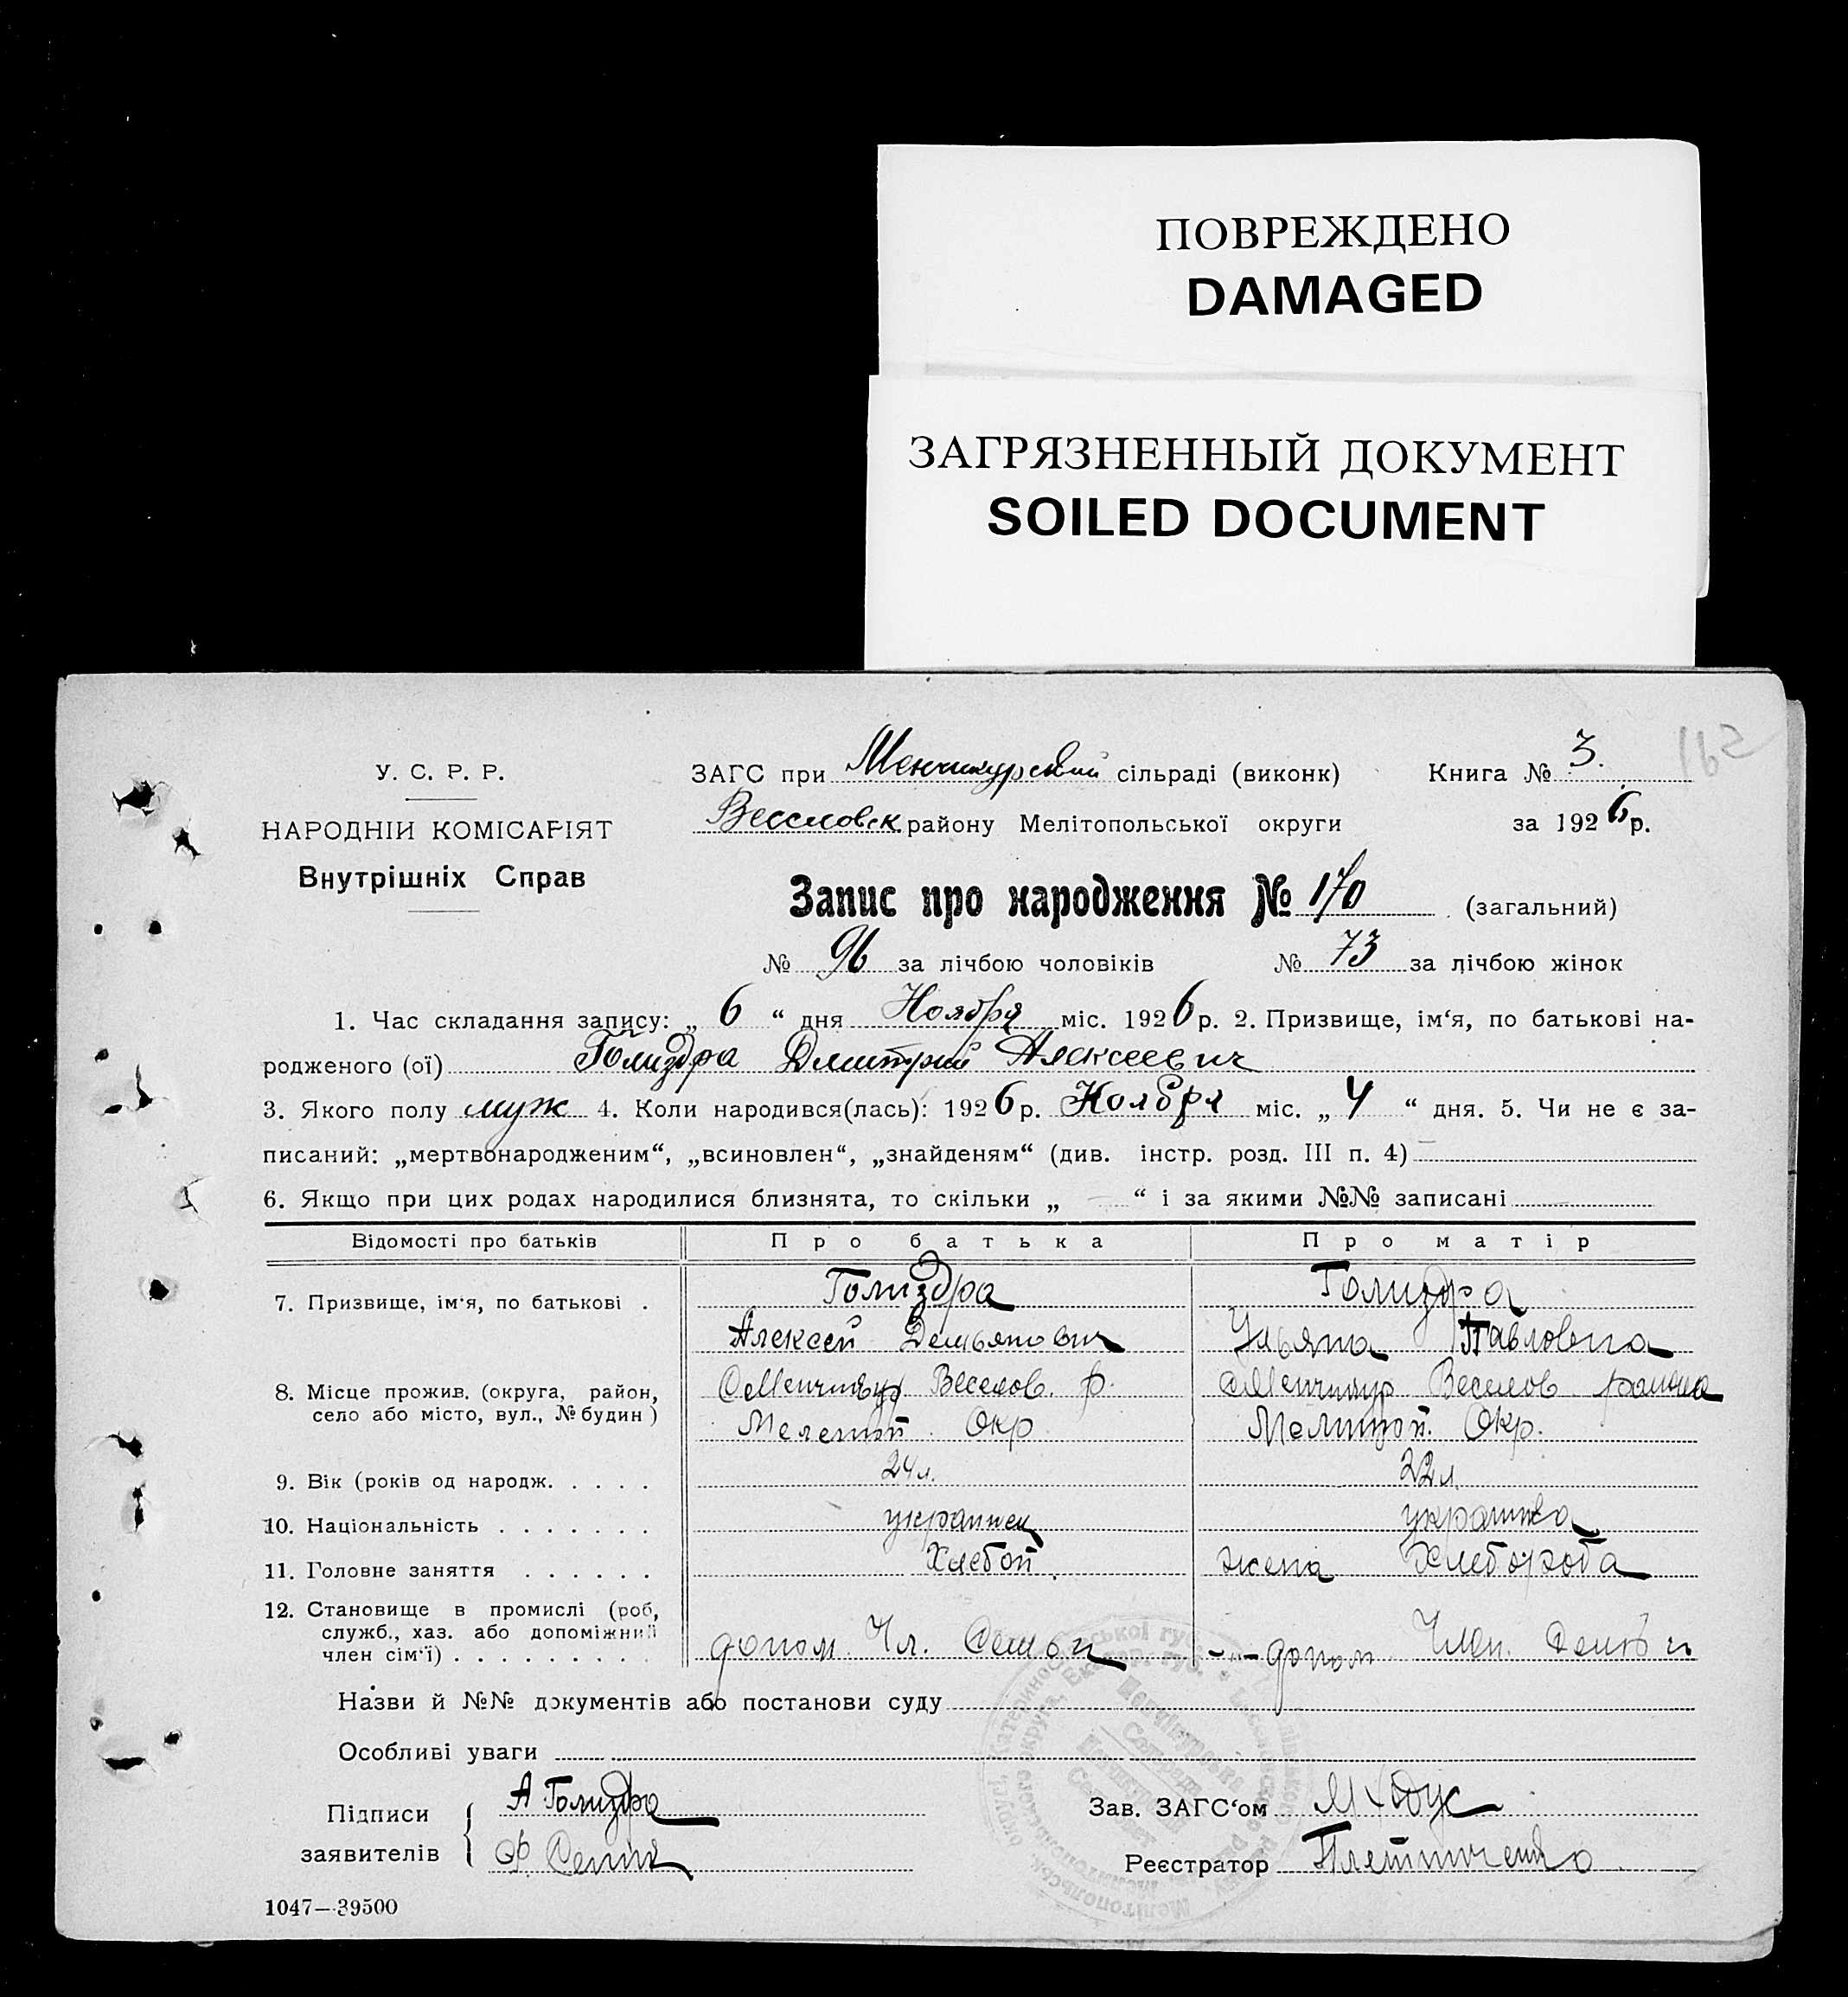 ПОВРЕЖДЕНО
DAMAGED
ЗАГРЯЗНЕННЫЙ ДОКУМЕНТ
SOILED DOCUMENT
165
У. С. Р. Р.
НАРОДНІИ КОМІСАРІЯТ
Внутрішніх Справ
ЗАГС при Менчикурский сільраді (виконк) Книга № 3.
Веселовск району Мелітопольської округи за 1926 р.
Запис про народження № 170 (загальний)
№ 96 за лічбою чоловіків № 73 за лічбою жінок
1. Час складання запису: „ 6 “ дня Ноября міс. 1926 р. 2. Призвище, ім‘я, по батькові на-
родженого (ої) Голиздра Дмитрий Алексеевич
3. Якого полу муж 4. Коли народився(лась): 1926 р. Ноября міс. „ 4 “ дня. 5. Чи не є за-
писаний: „мертвонародженим“, „всиновлен“, „знайденям“ (див. інстр. розд. III п. 4) —
6. Якщо при цих родах народилися близнята, то скільки „ — “ і за якими №№ записані
Відомості про батьків Про батька Про матір
7. Призвище, ім‘я, по батькові . Голиздра Голиздра
Алексей Демьянович Ульяна Павловна
8. Місце прожив. (округа, район, село або місто, вул., № будин) Веселов. р. Веселов района
Мелитоп. Окр.
9. Вік (років од народж. . . . . 24 л. 22 л.
10. Національність . . . . . . . украинец украинка
11. Головне заняття . . . . . . Хлебоп. жена Хлебороба
12. Становище в промислі (роб, служб., хаз. або допоміжний член сім‘ї) . . . . . . . . . допом. Чл. Семьи -"- допом Член. Семьи
Назви й №№ документів або постанови суду
Особливі уваги
Підписи заявителів А Голиздра
Зав. ЗАГС‘ом
Реєстратор
1047—39500